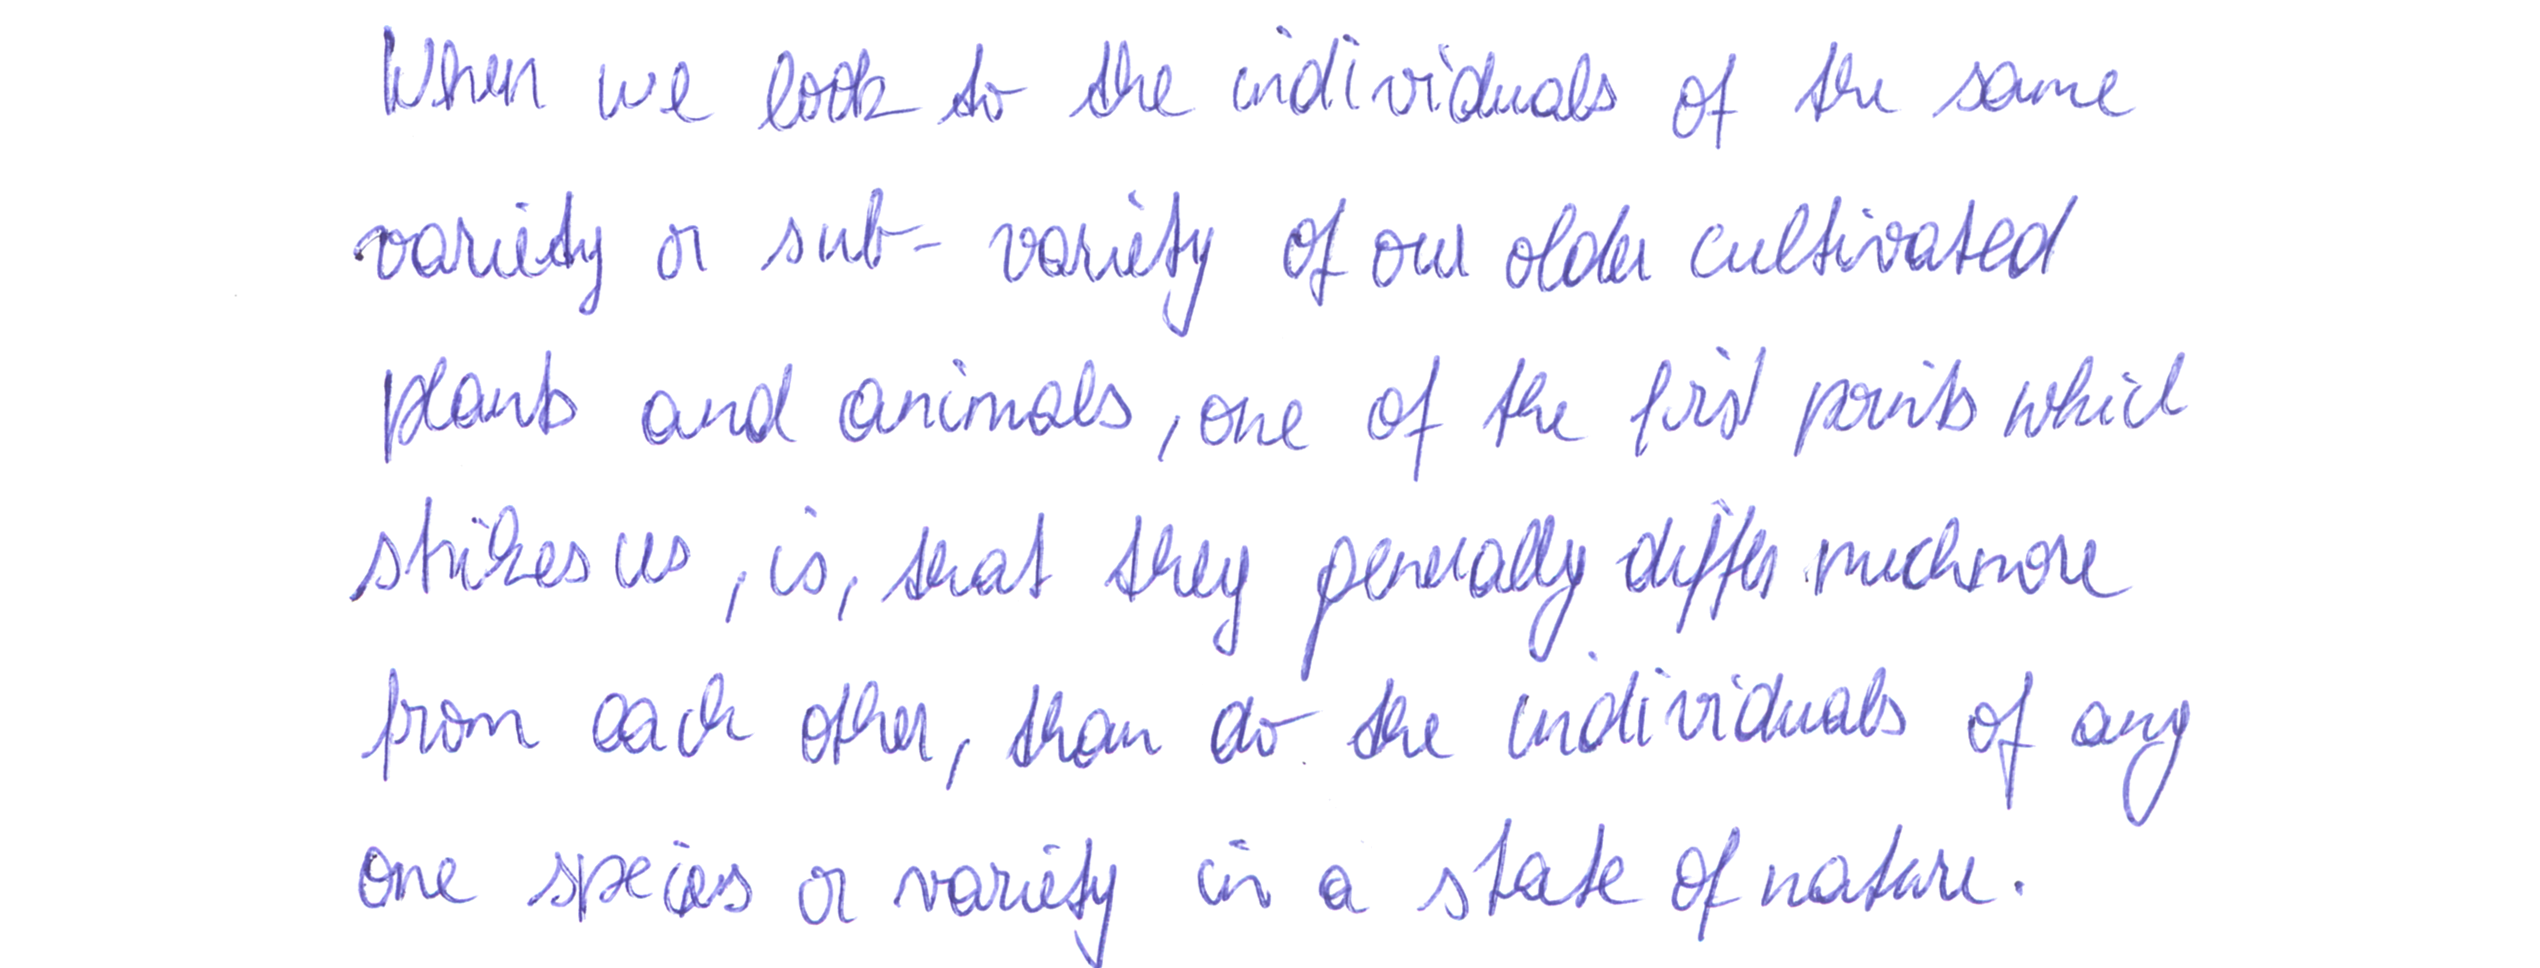 When we look to the individuals of the same
variety or sub-variety of our older cultivated
plants and animals, one of the first points which
strikes us, is, that they generally differ much more
from each other, than do the individuals of any
one species or variety in a state of nature.